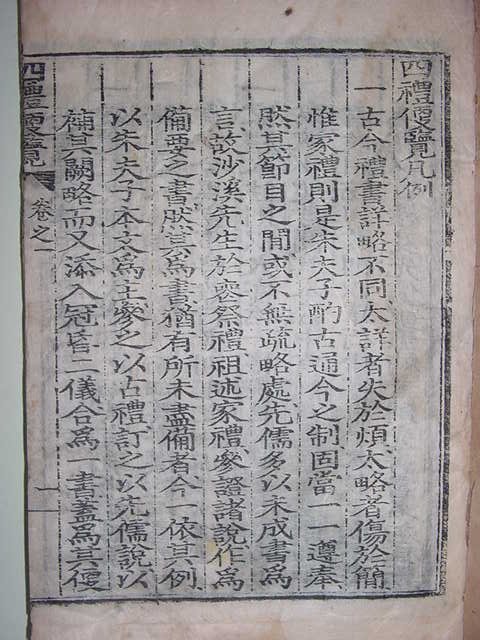 四禮便覽凡例
一古今禮書詳略不同太詳者失於煩太略者傷於簡
惟家禮則是朱夫子酌古通今之制固當一一遵奉
然其節目之間或不無疏略處先儒多以未成書爲
言故沙溪先生於喪祭禮祖述家禮參證諸說作爲
備要之書然其爲書猶有所未盡備者今一依其例
以朱夫子本文爲主參之以古禮訂之以先儒說以
補其闕略而又添入冠昏二儀合爲 書蓋爲其便
四禮便覽 卷之一 一